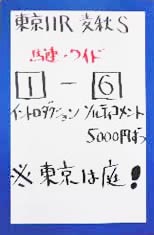 東京11R 麦秋S
馬連・ワイド
1 - 6
イントロダクション ソルティコメント
5000円ずつ
※東京は庭!